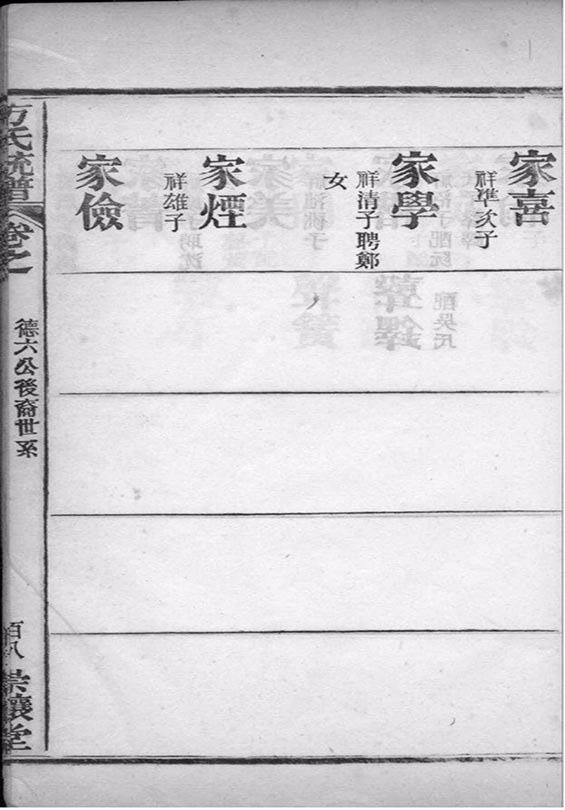 家喜
祥準次子
家學
祥清子聘鄭
女
家煙
祥雄子
家儉
方氏統譜
卷之
德六公後裔世系
百八
崇讓堂